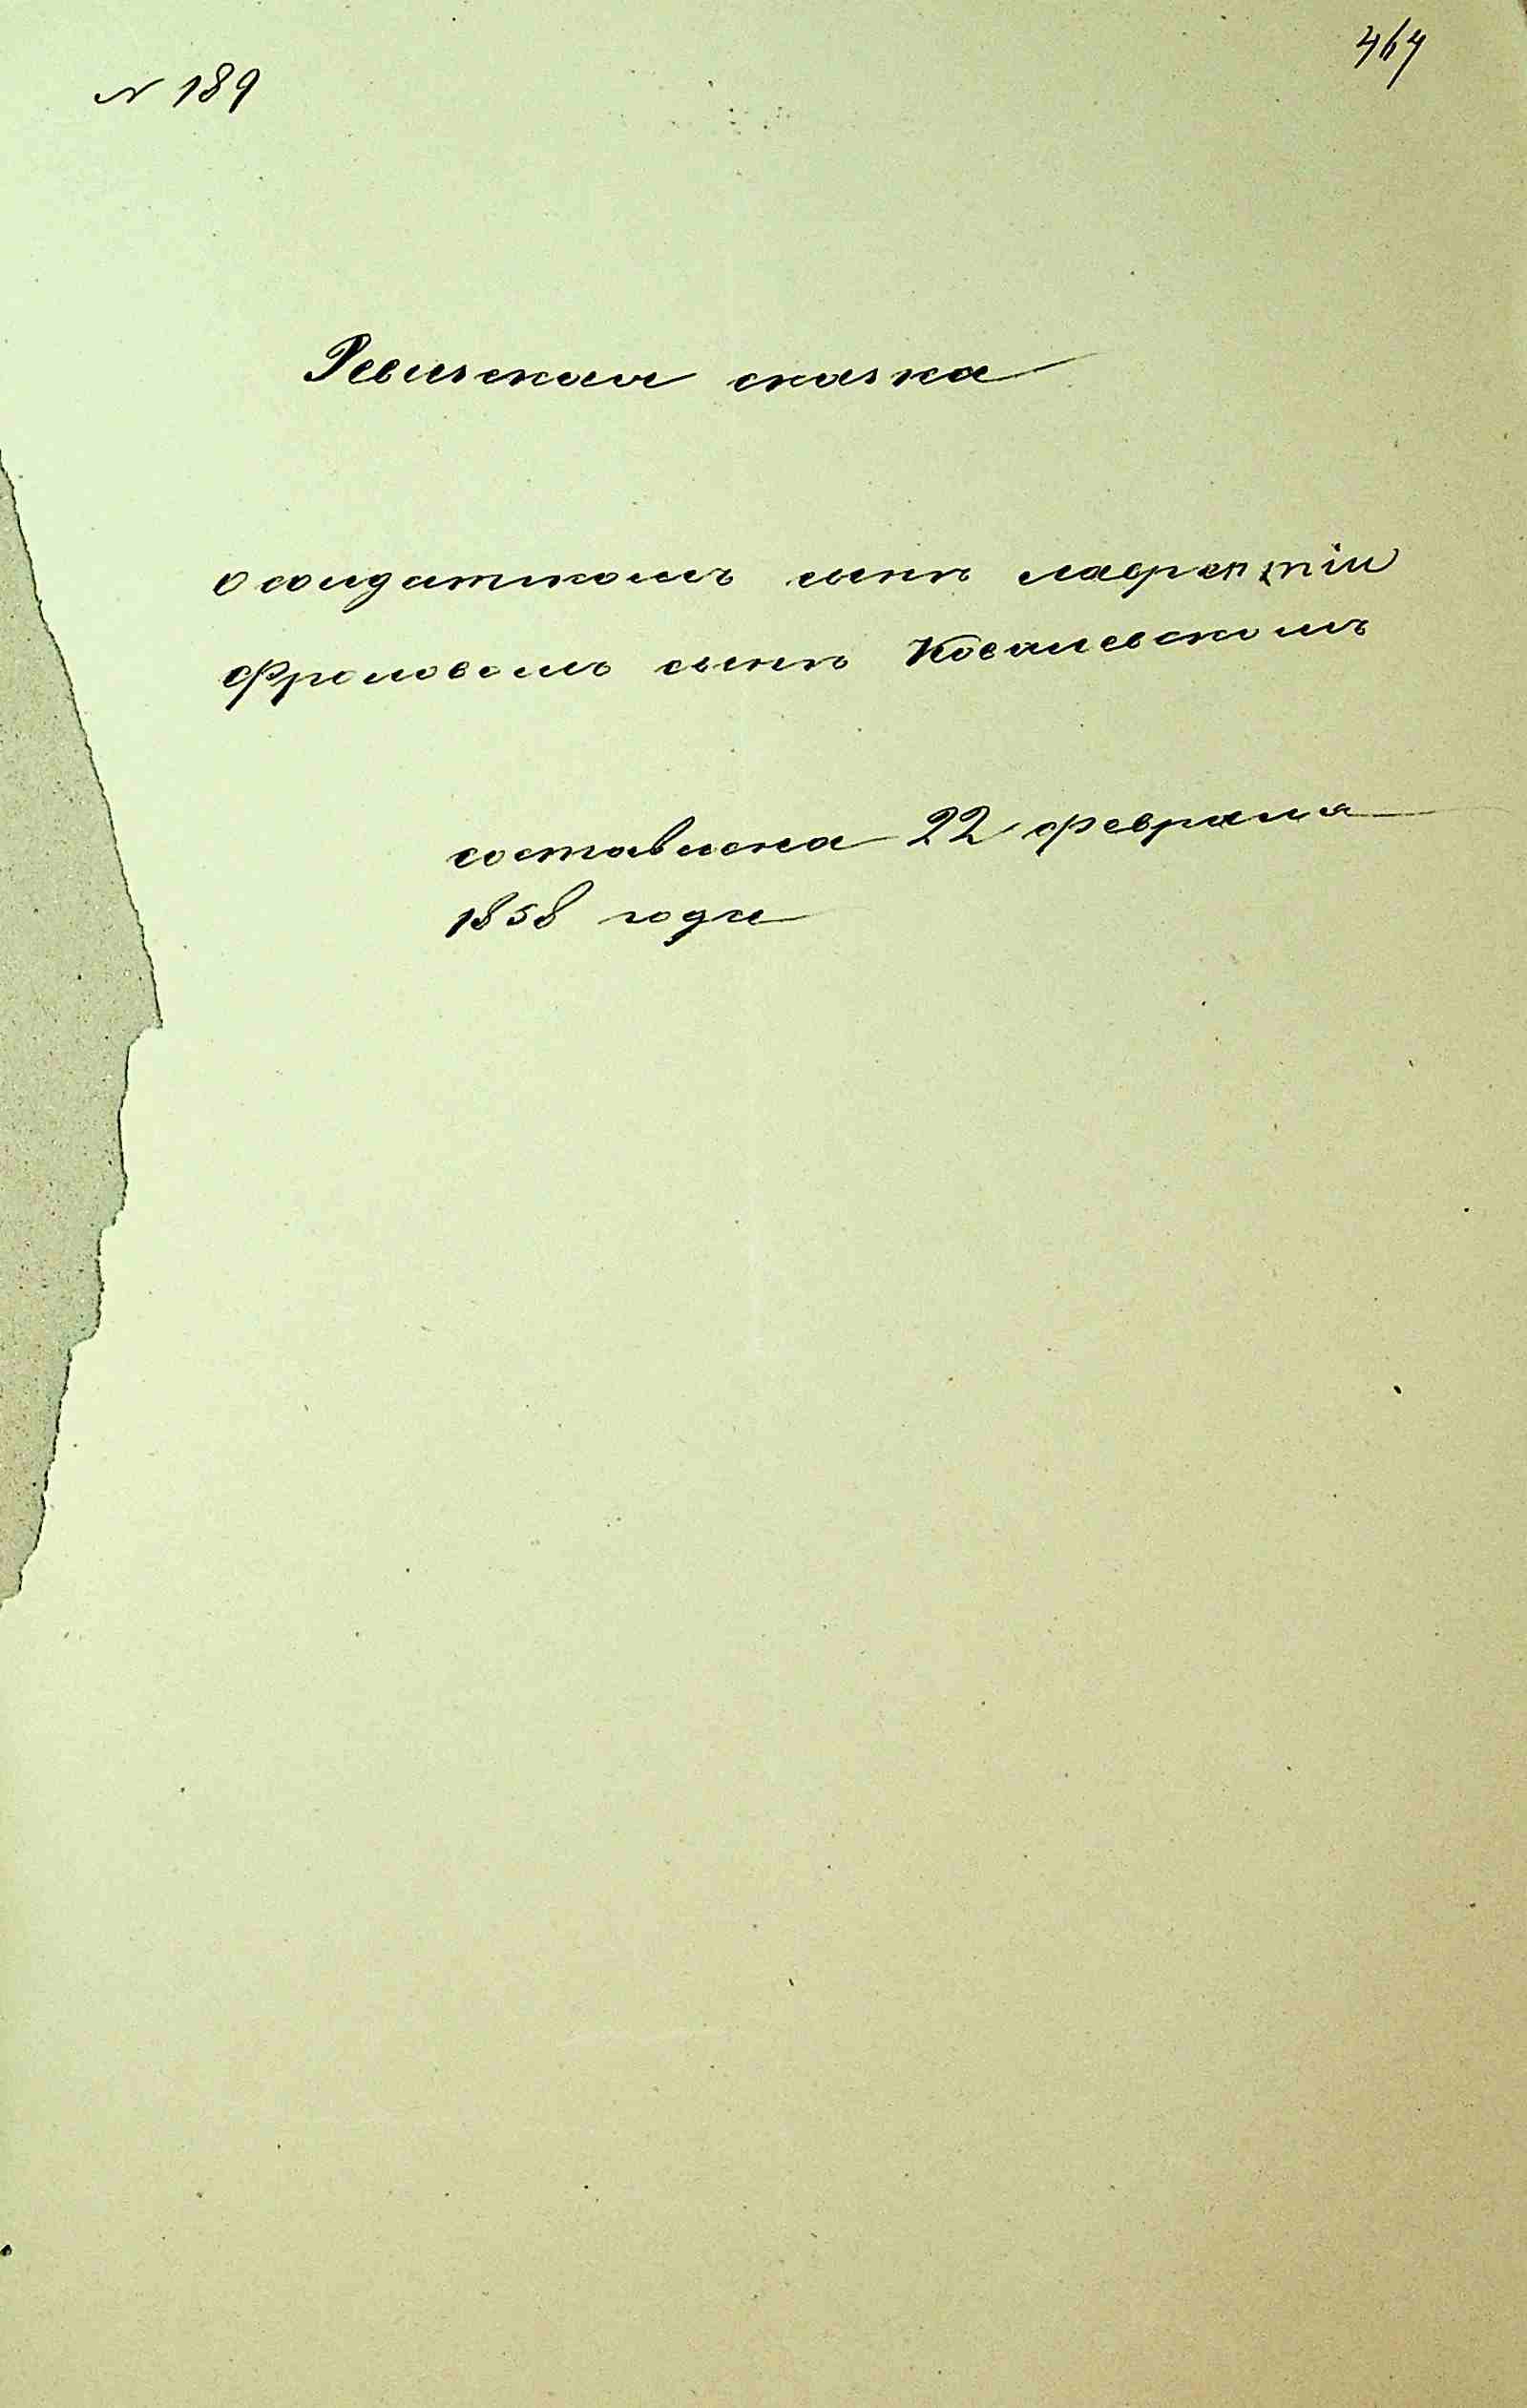 464
N 189
Ревизская сказка
о солдатскомъ сынѣ лаврентіи
Фроловомъ сынѣ Ковалевскомъ
составлена 22 февраля
1858 года